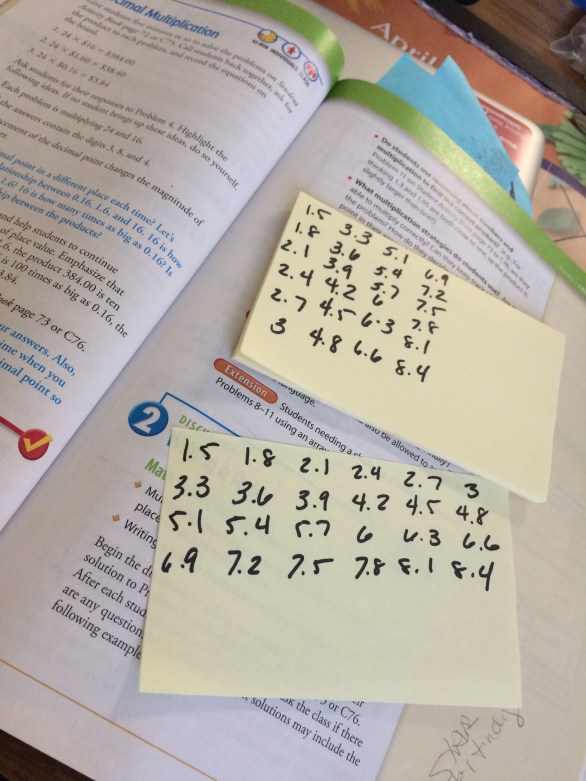 cimal Multiplication
Give students five minutes or so to solve the problems on Student
Activity Book page 72 or C75. Call students back together, ask for
the product to each problem, and record the equations on
the board.
1. 24 × $16 = $384.00
2. 24 × $1.60 = $38.40
3. 24 × $0.16 = $3.84
Ask students for their responses to Problem 4. Highlight the
following ideas. If no student brings up these ideas, do so yourself.
Each problem is multiplying 24 and 16.
the answers contain the digits 3, 8, and 4.
cement of the decimal point changes the magnitude of
mal point in a different place each time? Let's
lationship between 0.16, 1.6, and 16. 16 is how
1.6? 16 is how many times as big as 0.16? Is
ip between the products?
nd help students to continue
of place value. Emphasize that
1.6, the product 384.00 is ten
is 100 times as big as 0.16, the
3.84.
ook page 73 or C76.
ur answers. Also,
ime when you
imal point so
April
Do students use
multiplication to find
What multiplication strategies do students use?
1.5 3.3 5.1 6.9
1.8 3.6 5.4 7.2
2.1 3.9 5.7 7.5
2.4 4.2 6 7.8
2.7 4.5 6.3 8.1
3 4.8 6.6 8.4
nguage.
Extension
Students needing a
also be allowed to
Problems 8–11 using an array
2
DISC
1.5 1.8 2.1 2.4 2.7 3
3.3 3.6 3.9 4.2 4.5 4.8
5.1 5.4 5.7 6 6.3 6.6
6.9 7.2 7.5 7.8 8.1 8.4
Mat
Mu
place
Writing
Begin the di
solution to Pr
After each stud
are any question
following example
3 or C76.
sk the class if there
solutions may include the